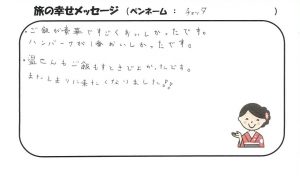 旅の幸せメッセージ (ペンネーム : チャッタ )
・ご飯が豪華ですごくおいしかったです。
ハンバーグが1番おいしかったです。
・温せんもご飯もすごきでよかったです。
またとまりに来たくなりました!!